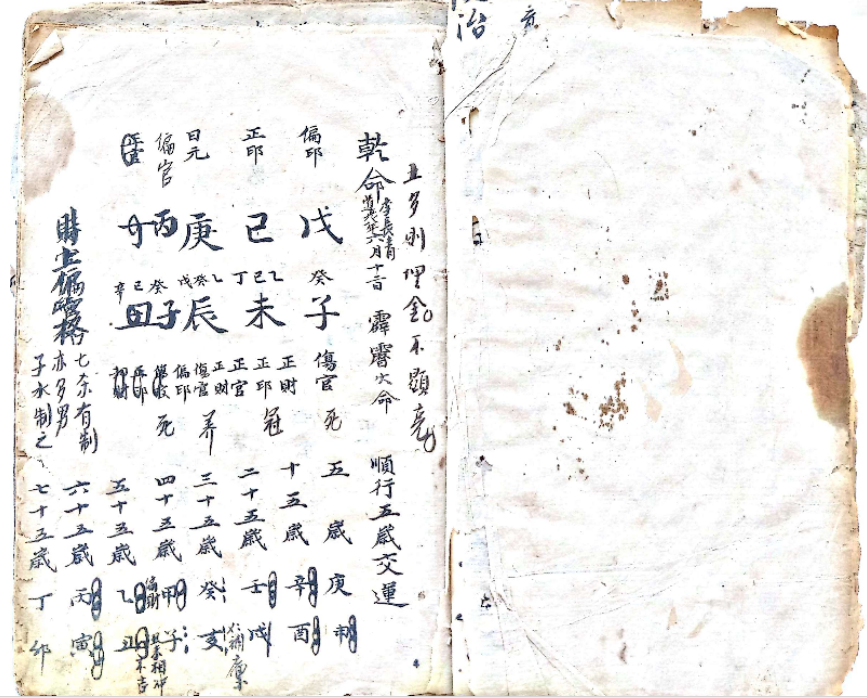 治
土多則埋金不顯亮
乾命 李長青 六月十二日 霹靂火命 順行五歲交運
偏印 戊 癸 子 傷官 死
正印 己 乙己丁 未 正財 正印 正官 冠
日元 庚 乙癸戊 辰 正財 傷官 偏印 養
偏官 丙 癸 子 死
丑 己 辛
時上偏官格
七杀有制
亦多男
子水制之
五歲 庚申
十五歲 辛酉
二十五歲 壬戌
三十五歲 癸亥
四十五歲 甲子
五十五歲 乙丑
六十五歲 丙寅
七十五歲 丁卯